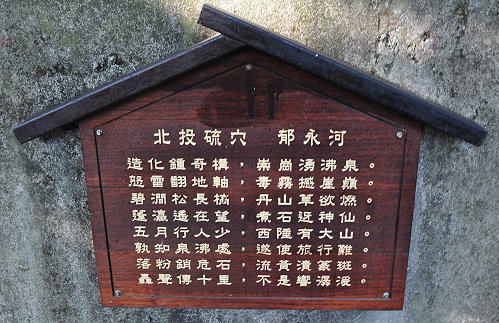 北投硫穴　郁永河
造化鍾奇構，崇崗湧沸泉。
怒雷翻地軸，毒霧撼崖巔。
碧澗松長槁，丹山草欲燃。
蓬瀛遙在望，煮石迓神仙。
五月行人少，西陲有火山。
孰知泉沸處，遂使旅行難。
落粉銷危石，流黃漬篆斑。
轟聲傳十里，不是響潺湲。